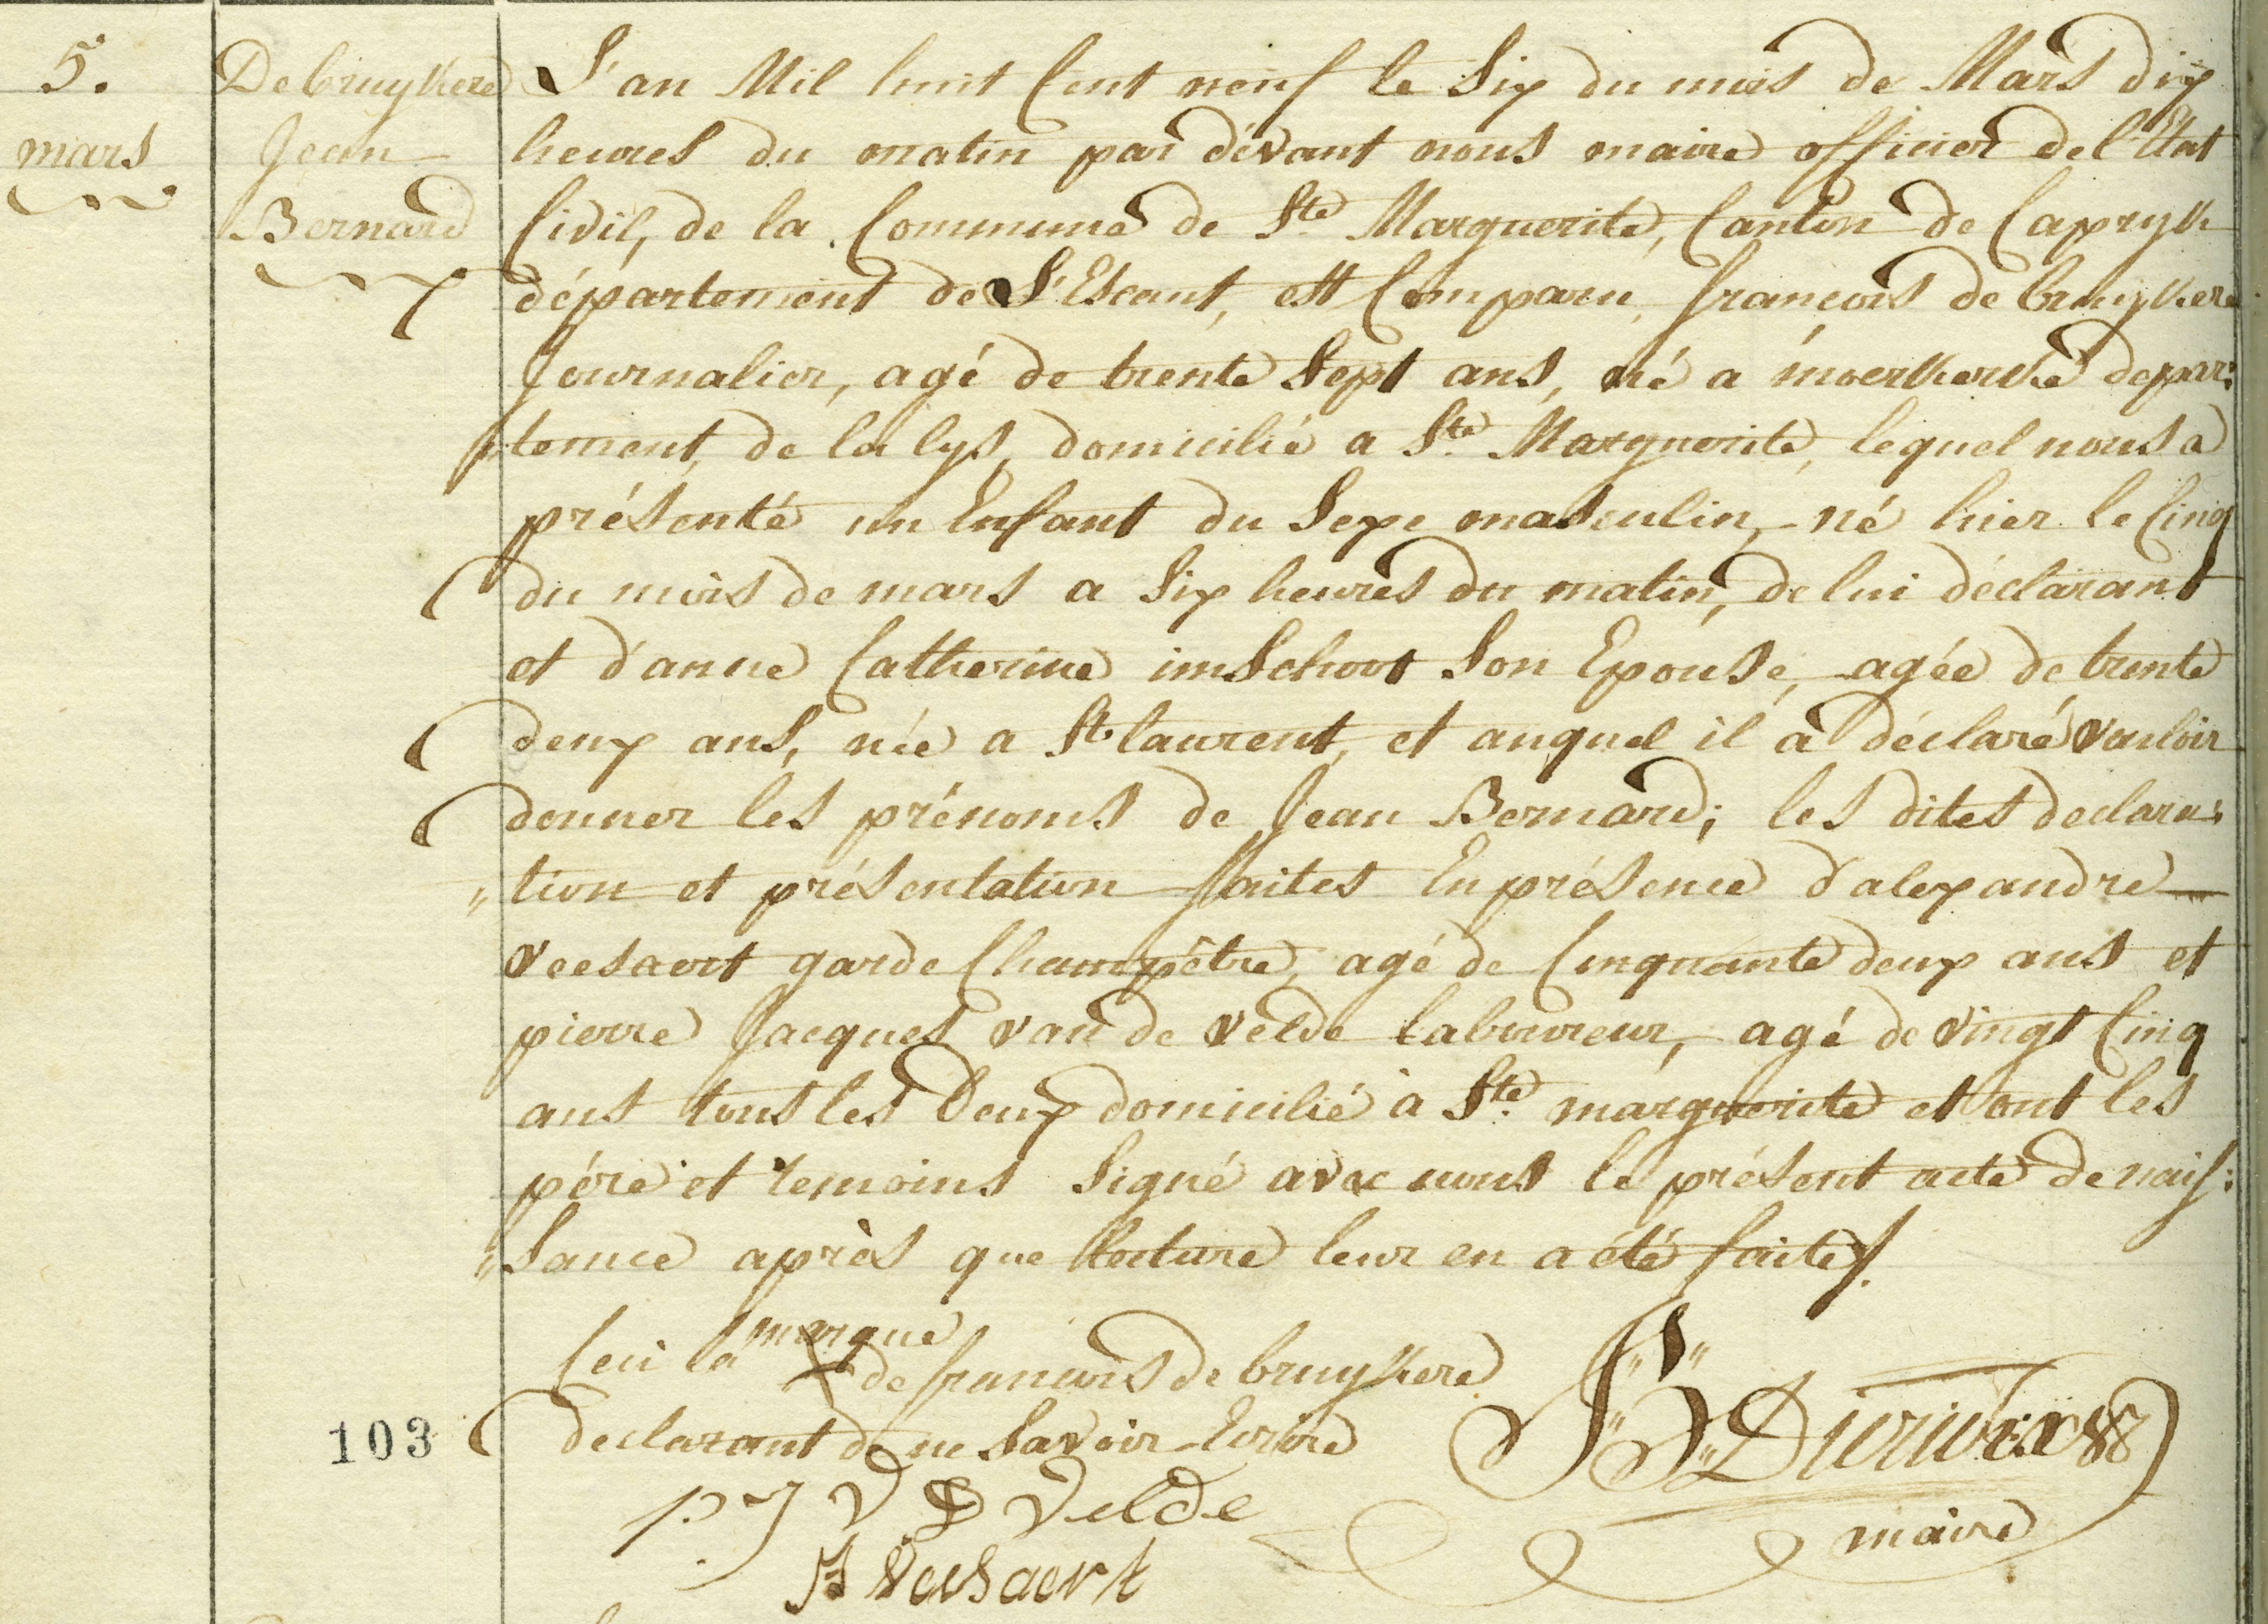 5.
mars
Debruykere
Jean
Bernard
L'an Mil huit Cent neuf le Six du mois de Mars dix
heures du matin par dévant nous maire officier de l'Etat
Civil, de la Commune de Ste Marguerite, Canton de Capryk
département de L'Escaut, est Comparu, francois de bruykere
Journalier, agé de trente Sept ans, né a moerkerke depar:
tement, de la lys, domicilié a Ste Marguerite, lequel nous a
présenté un Enfant du Sexe masculin, né hier le Cinq
du mois de mars a Six heures du matin, de lui déclarant
et d'anne Catherine imSchoot Son Epouse, agée de trente
deux ans, née a St laurent, et auquel il a déclaré vouloir
donner les prénoms de Jean Bernard; les dites declara:
"tion et présentation faites En présence d'alexandre
veesaert garde Champêtre, agé de Cinquante deux ans et
pierre Jacques van de velde laboureur, agé de vingt Cinq
ans tous les Deux domicilié à Ste marguerite et ont les
pére et temoins Signé avec nous le présent acte de naiss:
"Sance après que lecture leur en a été faite/.
Ceci la marque de francois de bruykere
declarant de ne Savoir Ecrire
103
P. J V D Velde
Veesaert
maire